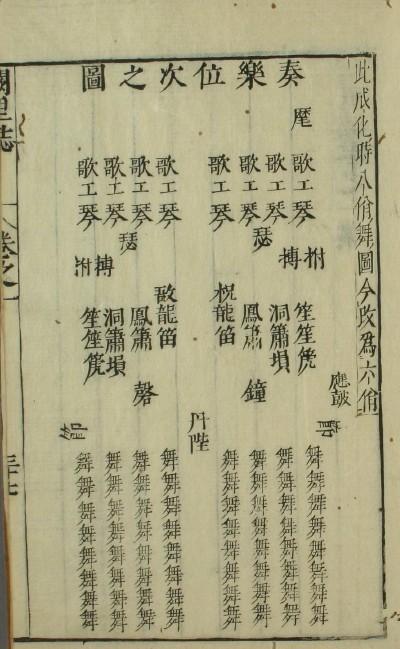 此成化時八佾舞圖今改爲六佾
奏樂位次之圖
應鼓
麾
歌工琴 拊 笙笙篪 舞舞舞舞舞舞舞舞
歌工琴 搏 洞簫塤 舞舞舞舞舞舞舞舞
歌工琴 瑟 鳳簫 鐘 舞舞舞舞舞舞舞舞
歌工琴 柷龍笛 舞舞舞舞舞舞舞舞
丹陛
歌工琴 敔龍笛 舞舞舞舞舞舞舞舞
歌工琴 瑟 鳳簫 磬 舞舞舞舞舞舞舞舞
歌工琴 搏 洞簫塤 舞舞舞舞舞舞舞舞
歌工琴 拊 笙笙篪 舞舞舞舞舞舞舞舞
節
闕里誌 卷之一